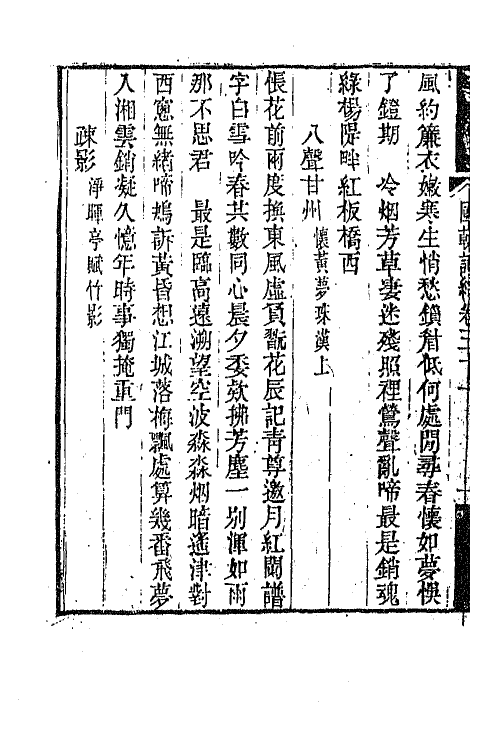 國朝詞綜卷三十
風約簾衣嫩寒生悄愁鎖眉低何處閒尋春懷如夢悞
了鐙期　冷烟芳草凄迷殘照裡鶯聲亂啼最是銷魂
綠楊隄畔紅板橋西
八聲甘州 懷黃夢珠漢上
悵花前兩度換東風虛負翫花辰記靑尊邀月紅闌譜
字白雪吟春其數同心晨夕委欬拂芳塵一別渾如雨
那不思君　最是臨高遠溯望空波淼淼烟暗遙津對
西窻無緒啼鴂訴黃昏想江城落梅飄處算幾番飛夢
入湘雲銷凝久憶年時事獨掩重門
疎影 淨暉亭賦竹影